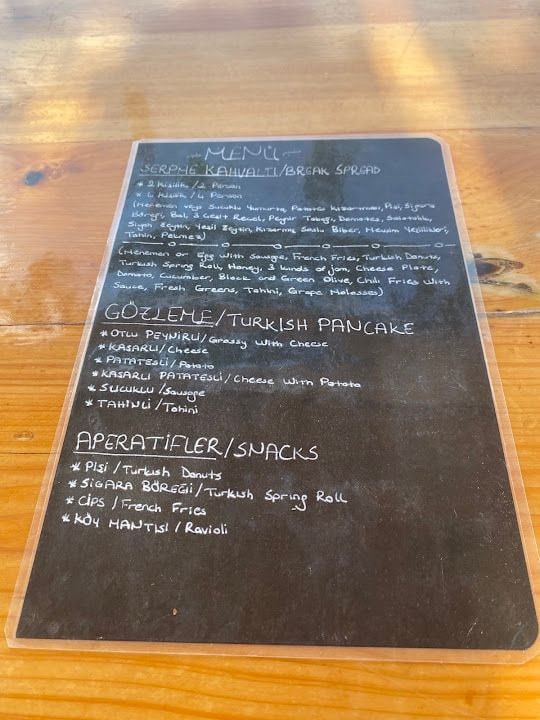 MENÜ
SERPME KAHVALTI/BREAK SPREAD
* 2 Kişilik / 2 Person
* 4 Kişilik / 4 Person
(Menemen veya Sucuklu Yumurta, Patates Kızartması, Pişi, Sigara
Böreği, Bal, 3 Çeşit Reçel, Peynir Tabağı, Domates, Salatalık,
Siyah Zeytin, Yeşil Zeytin, Kızartma Soslu Biber, Mevsim Yeşillikleri,
Tahin, Pekmez)
(Menemen or Egg With Sausage, French Fries, Turkish Donuts,
Turkish Spring Roll, Honey, 3 kinds of jam, Cheese Plate,
Domato, Cucumber, Black and Green Olive, Chili Fries With
Sauce, Fresh Greens, Tahini, Grape Molasses)
GÖZLEME/TURKISH PANCAKE
* OTLU PEYNİRLİ/Grassy With Cheese
* KAŞARLI/Cheese
* PATATESLİ/Potato
* KAŞARLI PATATESLİ/Cheese With Potato
* SUCUKLU/Sausage
* TAHİNLİ/Tahini
APERATİFLER/SNACKS
* PİŞİ/Turkish Donuts
* SİGARA BÖREĞİ/Turkish Spring Roll
* CİPS/French Fries
* KÖY MANTISI/Ravioli